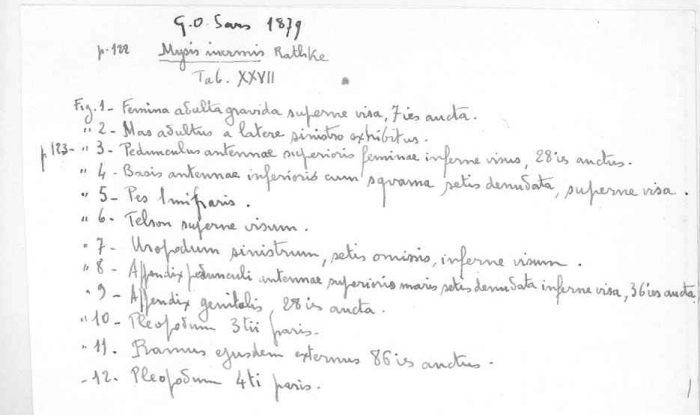 G.O. Sars 1879
p. 122 Mysis inermis Rathke
Tab. XXVII
Fig. 1 - Femina adulta gravida superne visa, 7ies aucta.
" 2 - Mas adultus a latere sinistro exhibitus.
p 123 - " 3 - Pedunculus antennae superioris feminae inferne visus, 28ies auctus.
" 4 - Basis antennae inferioris cum squama setis denudata, superne visa.
" 5 - Pes 1mi paris.
" 6 - Telson superne visum.
" 7 - Uropodum sinistrum, setis omissis, inferne visum.
" 8 - Appendix pedunculi antennae superioris maris setis denudata inferne visa, 36ies aucta
" 9 - Appendix genitalis 28ies aucta.
" 10 - Pleopodum 3tii paris.
" 11. Ramus ejusdem externus 86ies auctus.
- 12. Pleopodum 4ti paris.